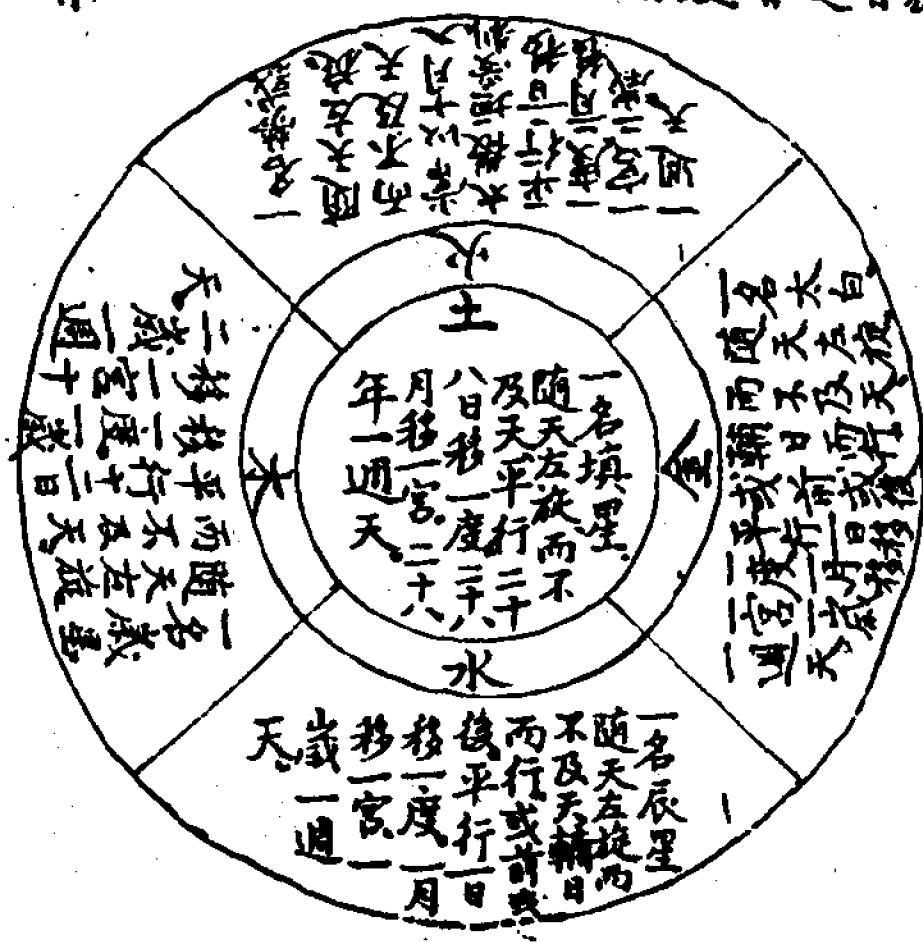 土
一名填星。
随天左旋而不
及天。平行二十
八日移一度。二十八
月移一宮。二十八
年一週天。
火
一名熒惑
随天左旋。
而不及天
常以十月入
太微垣受制
平行二日移
一度二月移
一宮二歲
一週天
金
一名太白
随天左旋。
而不及天。
輔日而行
或前或後
平行一日移
一度一月移
一宮一歲
一週天
水
一名辰星
随天左旋而
不及天輔日
而行或前或
後平行一日
移一度一月
移一宮一
歲一週
天。
木
一名歲星
随天左旋
而不及天
平行十二日
移一度一歲
移一宮十
二歲一週
天